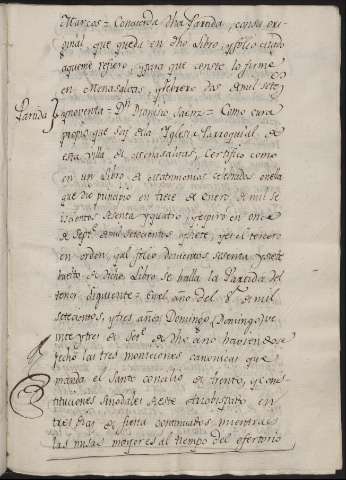 Marcos = Concuerda dha Partida, con su ori
ginal, que queda en dho Libro, y folio citado
aqueme refiero, y para que conste lo firme
en Menasalvas, y febrero dos de mil sete
Partida
y noventa = Dn Dionisio Saenz = Como cura
propio que soy de la Yglesia Parroquial de
esta villa de Menasalvas, Certifico como
en un Libro de Matrimonios celebrados en ella
que dio principio en trece de Enero, de mil se
iscientos setenta y quatro, y espiro en once
de Septe de mil setecientos y siete, y es el tercero
en orden, y al folio doscientos, sesenta, y siete
buelto de dicho Libro se halla la Partida del
tenor siguiente = En el año del Sr de mil
setecientos, y tres años Domingo (Domingo) ve
inte y tres de Sete de dho año haviendose
fecho las tres moniciones canonicas que
manda el santo concilio de trento, y cons
tituciones sinodales de este Arzobispado en
tres dias de fiesta continuados mientras
las misas mayores al tiempo del ofertorio